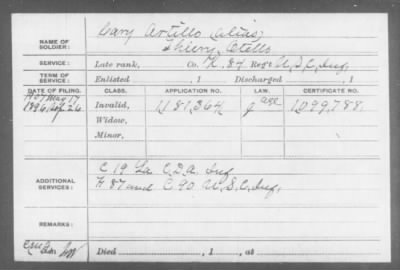 Cary Artillo (alias)
NAME OF SOLDIER: Thiery, Otello
SERVICE: Late rank, Co. K. 84 Reg't U.S.C. Inf.
TERM OF SERVICE: Enlisted , 1 Discharged , 1
DATE OF FILING. CLASS. APPLICATION NO. LAW. CERTIFICATE NO.
1907 May 17
1896 Invalid, 1181,364 age 1,099,788.
Widow,
Minor,
C 19 La. C.D.A. Inf
ADDITIONAL SERVICES: H 87 and C 90 U.S.C. Inf.
REMARKS:
Died , 1 , at